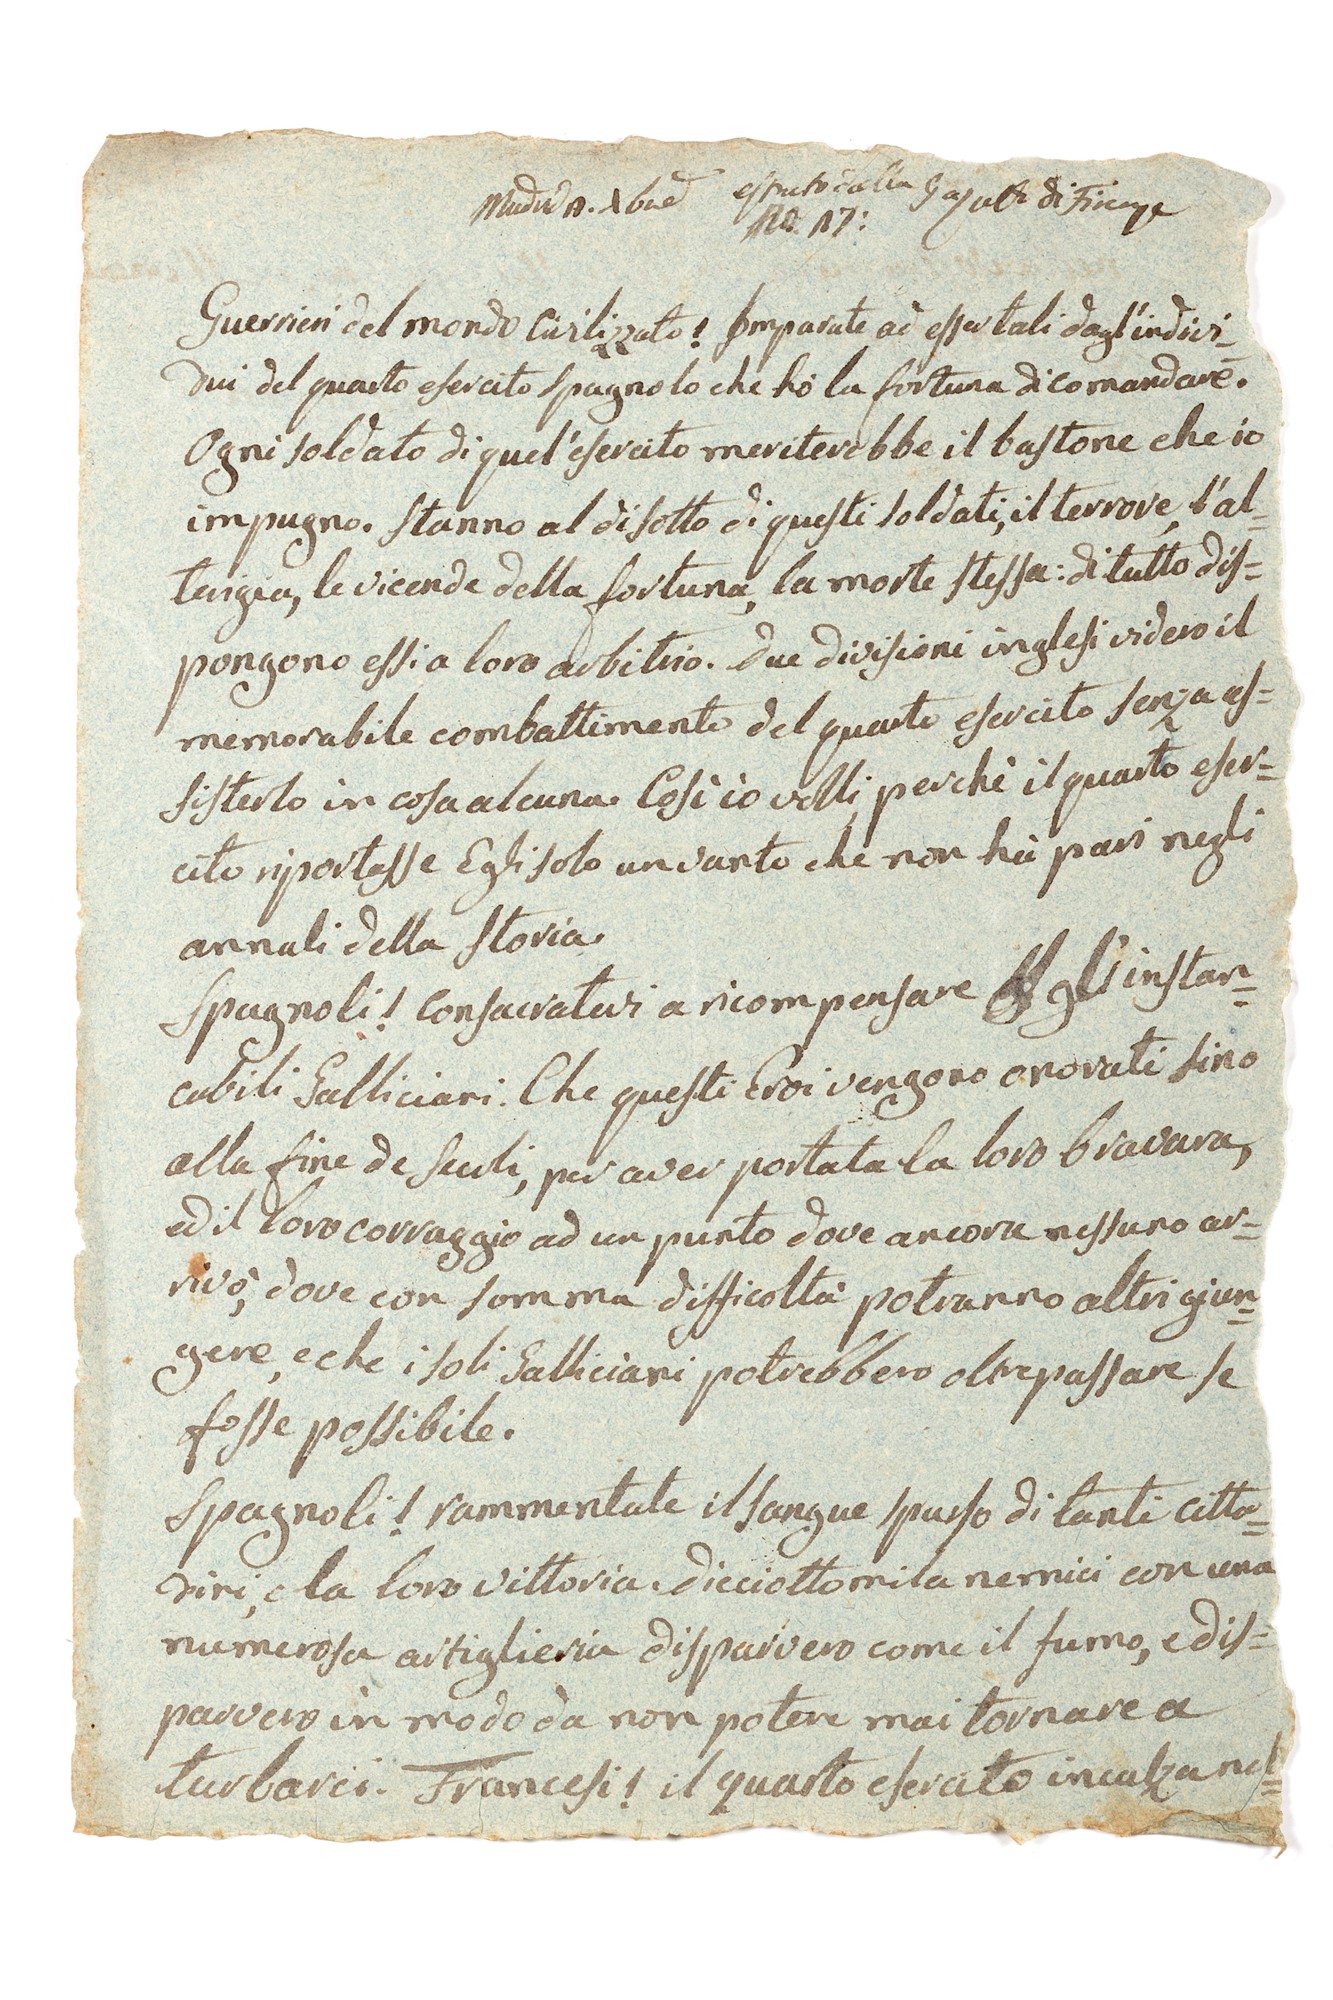 estratto dalla Gazetta di Firenze
No. 17:
Guerrieri del mondo Civilizzato! Imparate ad esser tali dagl'indivi=
dui del quarto esercito spagnolo che hò la fortuna di comandare.
Ogni soldato di quel'esercito meriterebbe il bastone che io
impugno. Stanno al disotto di questi soldati, il terrore, l'al=
terigia, le vicende della fortuna, la morte stessa: di tutto dis=
pongono essi a loro arbitrio. Due divisioni inglesi videro il
memorabile combattimento del quarto esercito senza as=
sisterlo in cosa alcuna. Così io volli, perchè il quarto eser=
cito riportasse Egli solo un vanto che non hà pari negli
annali della storia.
Spagnoli! Consacratevi a ricompensare gl'instan=
cabili Galliciani. Che questi Eroi vengono onorati sino
alla fine de secoli, per aver portata la loro bravura,
ed il loro corraggio ad un punto dove ancora nessuno ar=
rivò, dove con somma difficoltà potranno altri giun=
gere, e che i soli Galliciani potrebbero oltrepassare se
fosse possibile.
Spagnoli! rammentate il sangue sparso di tanti citta=
dini, e la loro vittoria. Dicciottomila nemici con una
numerosa artiglieria disparvero come il fumo, e dis=
parvero in modo da non potere mai tornare a
turbarci. Francesi! il quarto esercito incalza nel=